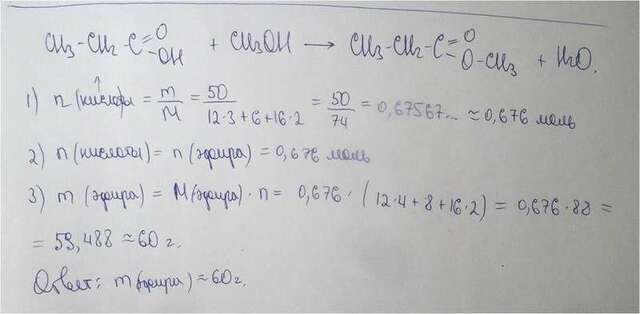 CH3-CH2-C=O-OH + CH3OH → CH3-CH2-C=O-O-CH3 + H2O.
1) n (кислоты) = m/M = 50/12·3+6+16·2 = 50/74 = 0,67567... ≈ 0,676 моль
2) n (кислоты) = n (эфира) = 0,676 моль
3) m (эфира) = M(эфира) · n = 0,676 · (12·4+8+16·2) = 0,676·88 =
= 59,488 ≈ 60 г.
Ответ: m(эфира) ≈ 60г.